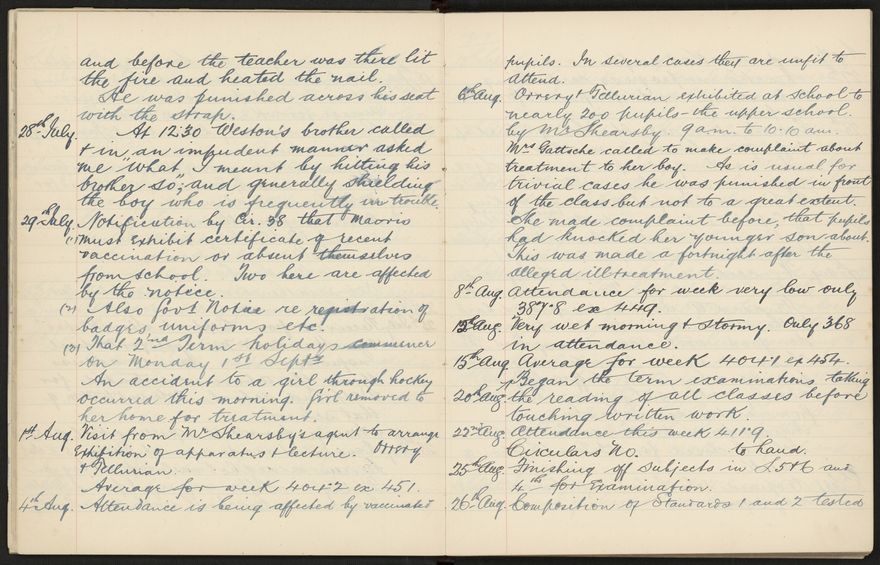 and before the teacher was there lit
the fire and heated the nail.
He was punished across his seat
with the strap.
28th July. At 12.30 Weston's brother called
+ in, an impudent manner asked
me "what, I meant by hitting his
brother so", and generally shielding
the boy who is frequently in trouble.
29th July. Notification by Cr. 38 that Maoris
(1) must exhibit certificate of recent
vaccination or absent themselves
from school. Two here are affected
by the notice.
(2) Also Govt Notice re registration of
badges, uniforms etc.
(3) That 2nd Term holidays commence
on Monday 1st Sept.
An accident to a girl through hockey
occurred this morning. Girl removed to
her home for treatment.
1st Aug. Visit from Mr Shearsby's agent to arrange
Exhibition of apparatus + lecture. Orrery
+ Tellurian.
Average for week 404.2 ex 451.
4th Aug. Attendance is being affected by vaccinated
pupils. In several cases they are unfit to
attend.
6th Aug. Orrery + Tellurian exhibited at school to
nearly 200 pupils - the upper school.
by Mr Shearsby. 9 a.m. to 10.10 a.m.
Mrs Gattsche called to make complaint about
treatment to her boy. As is usual for
trivial cases he was punished in front
of the class but not to a great extent.
She made complaint before, that pupils
had knocked her younger son about.
This was made a fortnight after the
alleged illtreatment.
8th Aug. Attendance for week very low only
387.8 ex 449.
12th Aug. Very wet morning + stormy. Only 368
in attendance.
15th Aug. Average for week 404.1 ex 454.
Began the term examinations, taking
20th Aug. the reading of all classes before
touching written work.
22nd Aug. Attendance this week 411.9.
Circulars No. to hand.
25th Aug. Finishing off subjects in S.5+6 and
4th for Examination.
26th Aug. Composition of Standards 1 and 2 tested